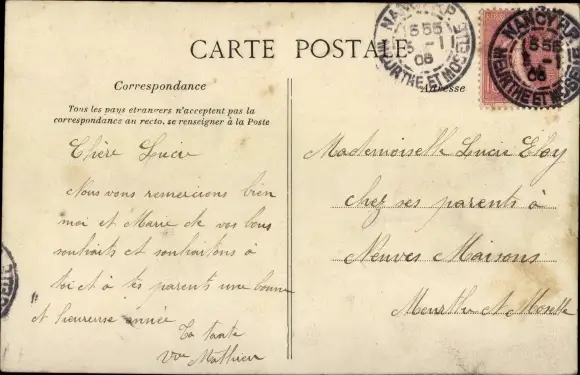 CARTE POSTALE
Correspondance
Adresse
Tous les pays etrangers n'acceptent pas la
correspondance au recto, se renseigner à la Poste
NANCY R.P.
15 55
5 - 1
06
MEURTHE ET MOSELLE
NANCY R.P.
15 55
5 - 1
06
MEURTHE ET MOSELLE
Chère Lucie
Nous vous remercions bien
moi et Marie de vos bons
souhaits et souhaitons à
toi et à tes parents une bonne
et heureuse année
Ta tante
Vve Mathieu
Mademoiselle Lucie Eloy
chez ses parents à
Neuves Maisons
Meurthe et Moselle